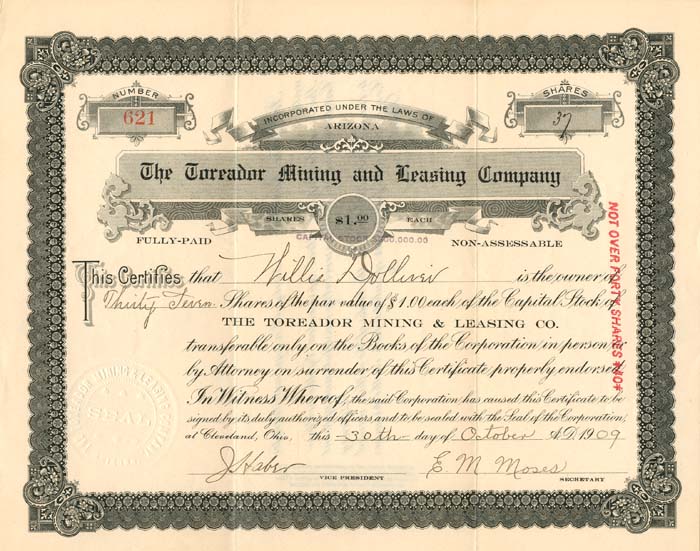 NUMBER
621
INCORPORATED UNDER THE LAWS OF
ARIZONA
SHARES
37
The Toreador Mining and Leasing Company
SHARES $1.00 EACH
CAPITAL STOCK
FULLY-PAID
NON-ASSESSABLE
NOT OVER FORTY SHARES *40*
This Certifies that Willis Dolliver is the owner of
Thirty Seven Shares of the par value of $1.00 each of the Capital Stock of
THE TOREADOR MINING & LEASING CO.
transferable only on the Books of the Corporation in person or
by Attorney on surrender of this Certificate properly endorsed.
In Witness Whereof, the said Corporation has caused this Certificate to be
signed by its duly authorized officers and to be sealed with the Seal of the Corporation,
at Cleveland, Ohio, this 30th day of October A.D. 1909
SEAL
J Haber
E. M Moses
VICE PRESIDENT
SECRETARY